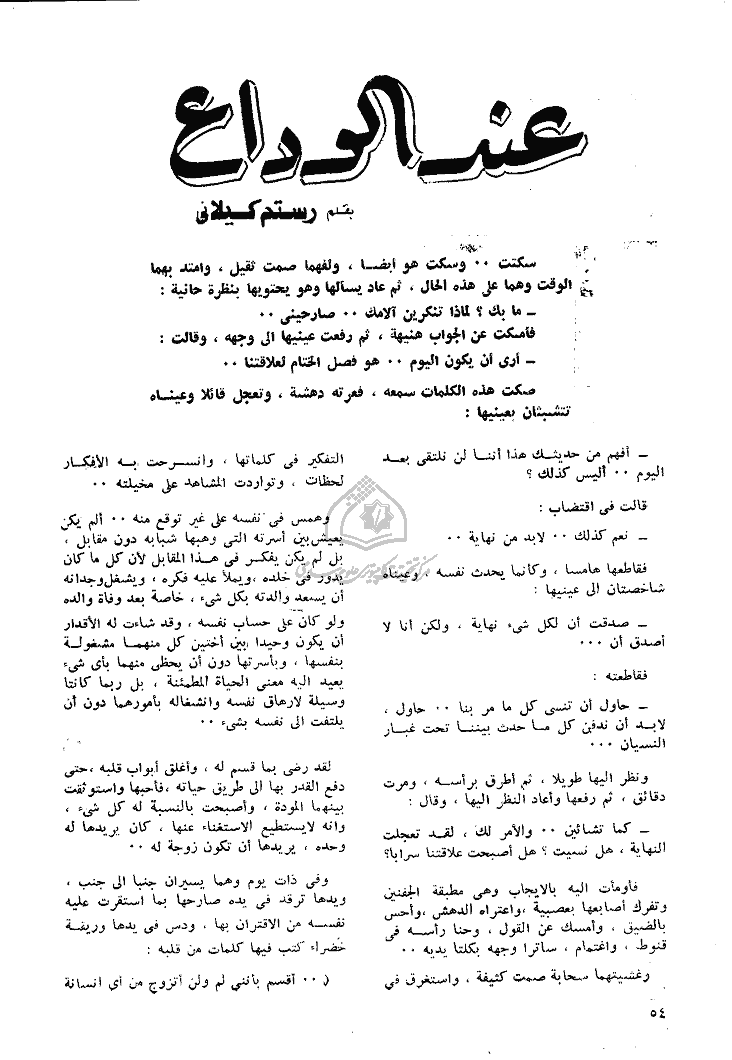 عند الوداع
بقلم رستم كيلانى
سكتت ٠٠ وسكت هو أيضا ، ولفهما صمت ثقيل ، وامتد بهما
الوقت وهما على هذه الحال ، ثم عاد يسألها وهو يحتويها بنظرة حانية :
ـ ما بك ؟ لماذا تنكرين آلامك ٠٠ صارحينى ٠٠
فأمسكت عن الجواب هنيهة ، ثم رفعت عينيها الى وجهه ، وقالت :
ـ أرى أن يكون اليوم ٠٠ هو فصل الختام لعلاقتنا ٠٠
صكت هذه الكلمات سمعه ، فعرته دهشة ، وتعجل قائلا وعيناه
تتشبثان بعينيها :
ـ أفهم من حديثك هذا أننا لن نلتقى بعد
اليوم ٠٠ أليس كذلك ؟
قالت فى اقتضاب :
ـ نعم كذلك ٠٠ لابد من نهاية ٠٠
فقاطعها هامسا ، وكأنما يحدث نفسه ، وعيناه
شاخصتان الى عينيها :
ـ صدقت أن لكل شىء نهاية ، ولكن أنا لا
أصدق أن ٠٠٠
فقاطعته :
ـ حاول أن تنسى كل ما مر بنا ٠٠ حاول ،
لابد أن ندفن كل ما حدث بيننا تحت غبار
النسيان ٠٠٠
ونظر اليها طويلا ، ثم أطرق برأسه ، ومرت
دقائق ، ثم رفعها وأعاد النظر اليها ، وقال :
ـ كما تشائين ٠٠ والأمر لك ، لقد تعجلت
النهاية ، هل نسيت ؟ هل أصبحت علاقتنا سرابا؟
فأومأت اليه بالايجاب وهى مطبقة الجفنين
وتفرك أصابعها بعصبية ،واعتراه الدهش ،وأحس
بالضيق ، وأمسك عن القول ، وحنا رأسه فى
قنوط ، واغتمام ، ساترا وجهه بكلتا يديه ٠٠
وغشيتهما سحابة صمت كثيفة ، واستغرق فى
التفكير فى كلماتها ، وانسرحت به الأفكار
لحظات ، وتواردت المشاهد على مخيلته ٠٠
وهمس فى نفسه على غير توقع منه ٠٠ ألم يكن
يعيش بين أسرته التى وهبها شبابه دون مقابل ،
بل لم يكن يفكر فى هذا المقابل لأن كل ما كان
يدور فى خلده ،ويملأ عليه فكره ، ويشغل وجدانه
أن يسعد والدته بكل شىء ، خاصة بعد وفاة والده
ولو كان على حساب نفسه ، وقد شاءت له الأقدار
أن يكون وحيدا بين أختين كل منهما مشغولة
بنفسها ، وبأسرتها دون أن يحظى منهما بأى شىء
يعيد اليه معنى الحياة المطمئنة ، بل ربما كانتا
وسيلة لارهاق نفسه وانشغاله بأمورهما دون أن
يلتفت الى نفسه بشىء ٠٠
لقد رضى بما قسم له ، وأغلق أبواب قلبه ،حتى
دفع القدر بها الى طريق حياته ،فأحبها واستوثقت
بينهما المودة ، وأصبحت بالنسبة له كل شىء ،
وانه لايستطيع الاستغناء عنها ، كان يريدها له
وحده ، يريدها أن تكون زوجة له ٠٠
وفى ذات يوم وهما يسيران جنبا الى جنب ،
ويدها ترقد فى يده صارحها بما استقرت عليه
نفسه من الاقتران بها ، ودس فى يدها وريقة
خضراء كتب فيها كلمات من قلبه :
( ٠٠ أقسم بأننى لم ولن أتزوج من أى انسانة
٥٤